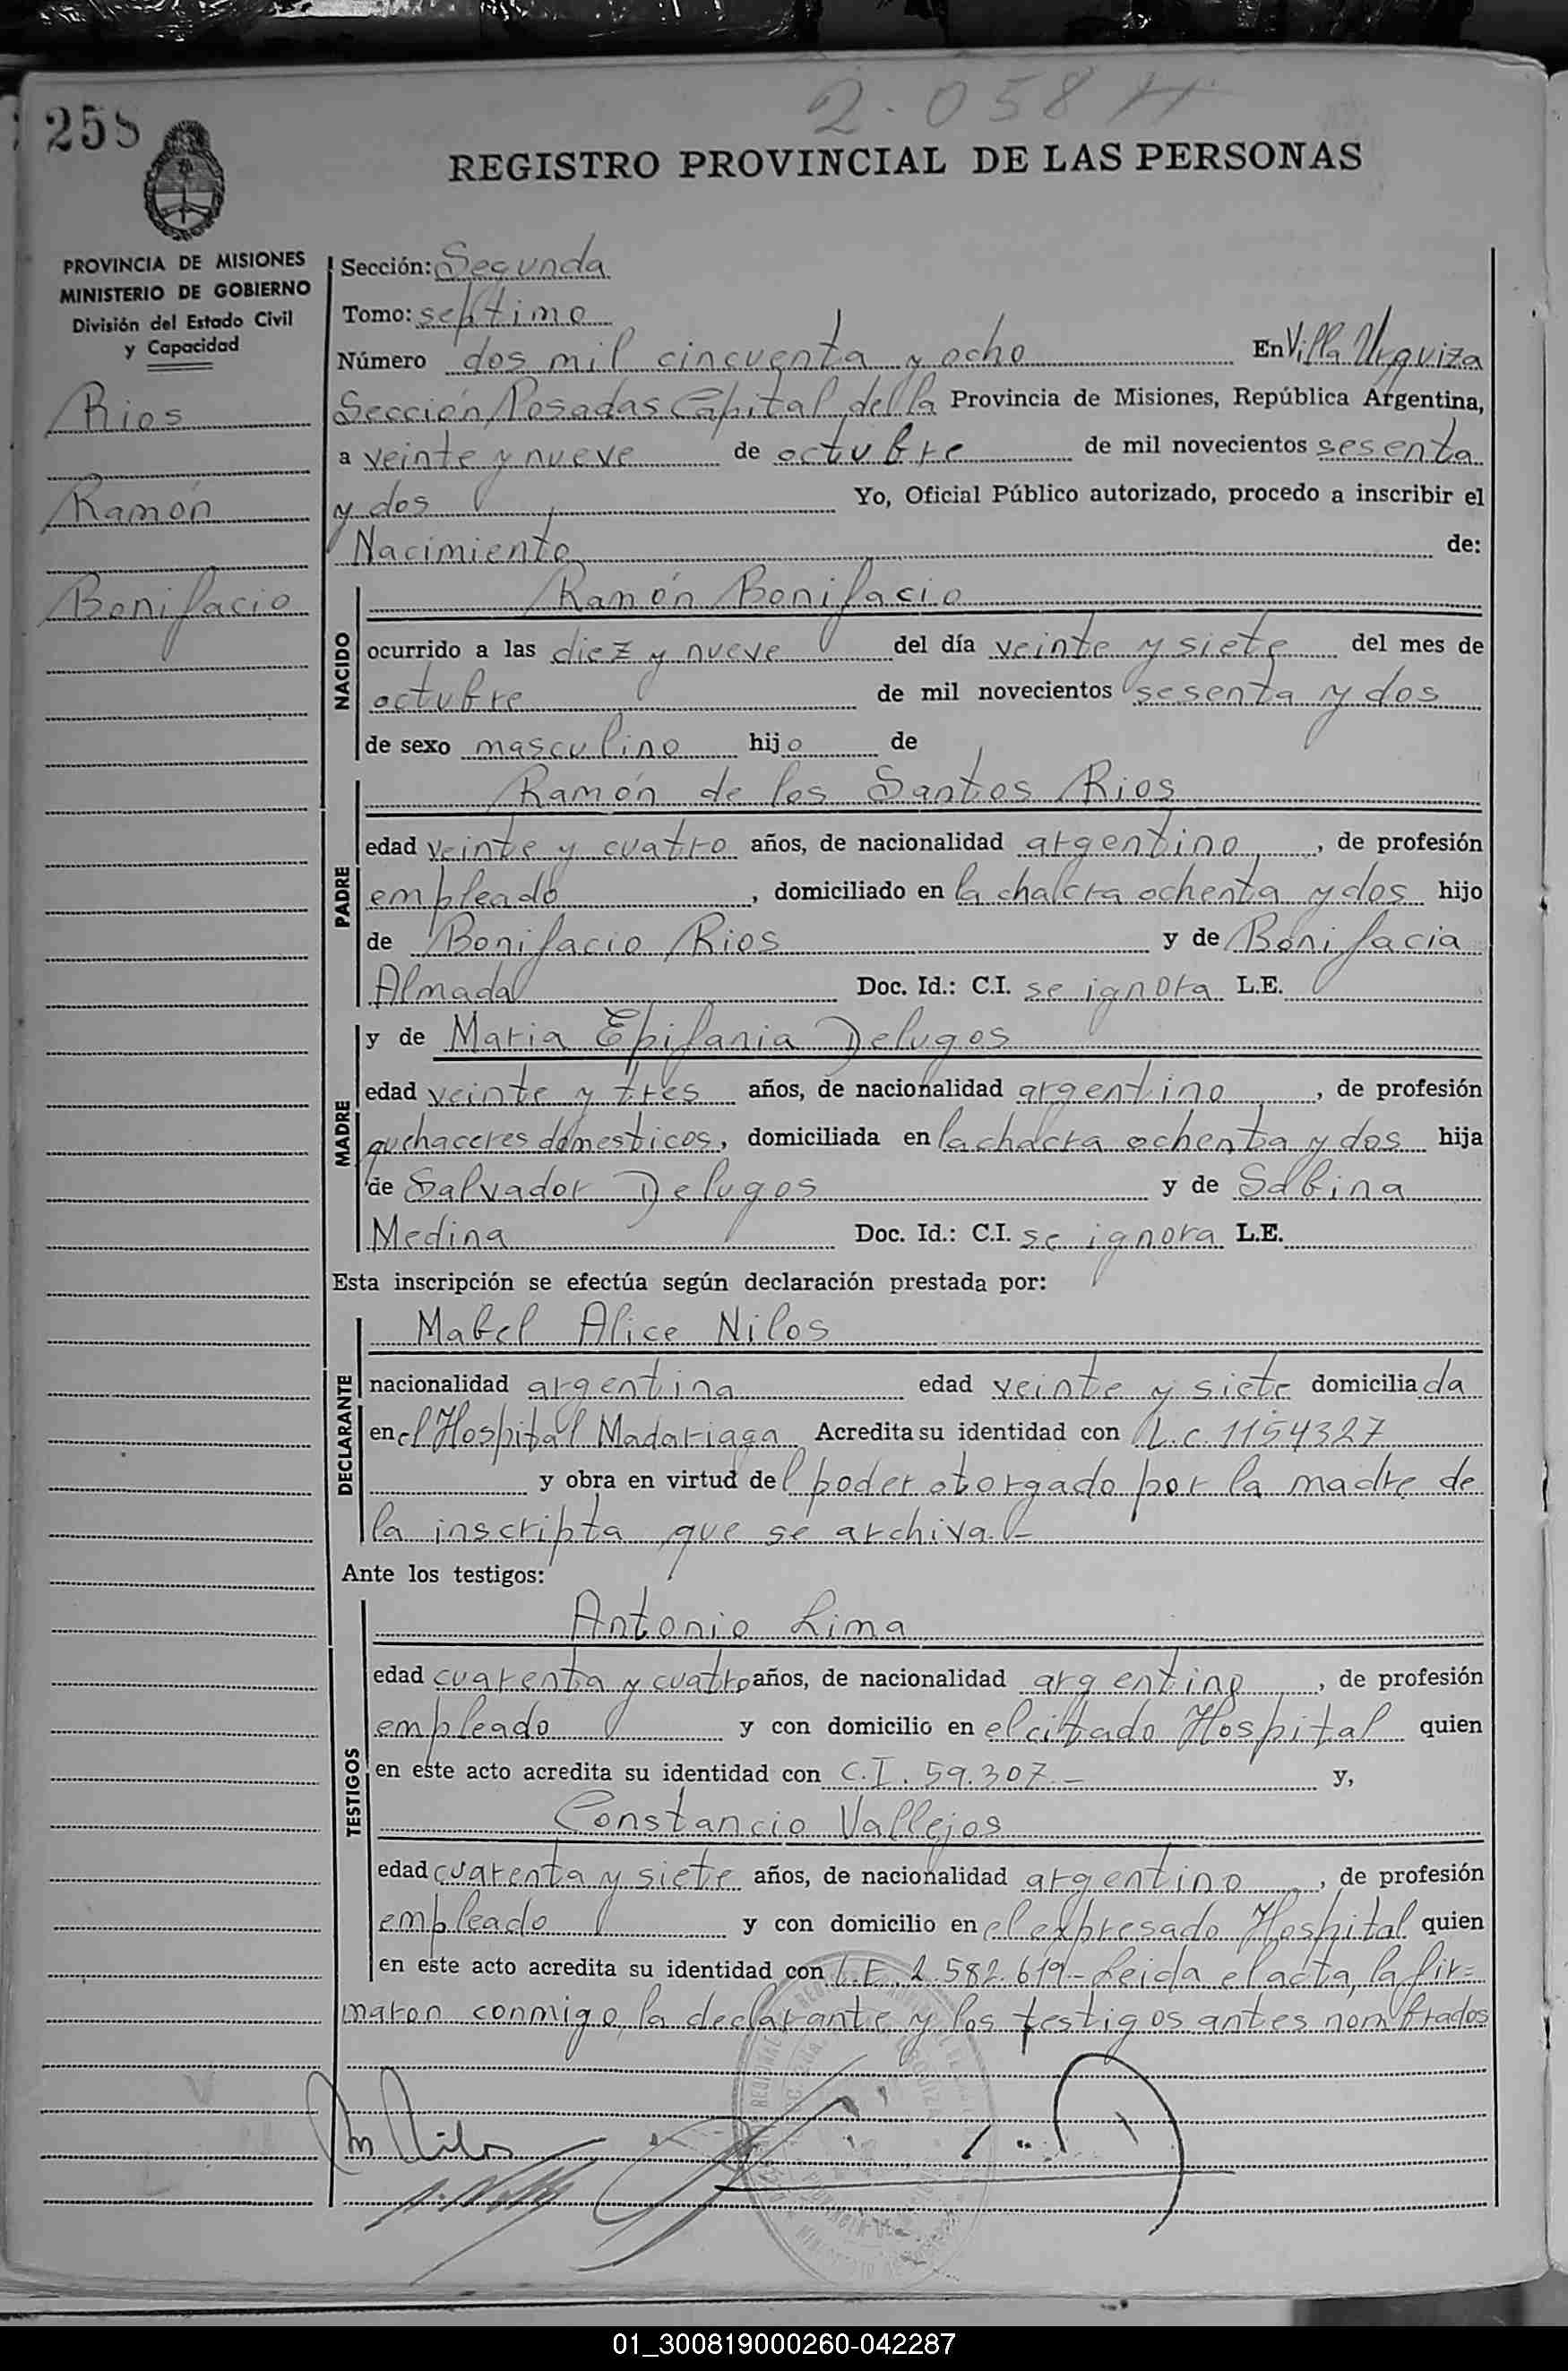 2.058
258
REGISTRO PROVINCIAL DE LAS PERSONAS
PROVINCIA DE MISIONES
MINISTERIO DE GOBIERNO
División del Estado Civil
y Capacidad
Rios
Ramón
Bonifacio
Sección: Segunda
Tomo: septimo
Número dos mil cincuenta y ocho En Villa Urquiza
Sección Posadas Capital de la Provincia de Misiones, República Argentina,
a veinte y nueve de octubre de mil novecientos sesenta
y dos Yo, Oficial Público autorizado, procedo a inscribir el
Nacimiento de:
NACIDO
Ramón Bonifacio
ocurrido a las diez y nueve del día veinte y siete del mes de
octubre de mil novecientos sesenta y dos
de sexo masculino hijo de
PADRE
Ramón de los Santos Rios
edad veinte y cuatro años, de nacionalidad argentino, de profesión
empleado, domiciliado en la chalcra ochenta y dos hijo
de Bonifacio Rios y de Bonifacia
Almada Doc. Id.: C.I. se ignora L.E.
MADRE
y de Maria Epifania Delugos
edad veinte y tres años, de nacionalidad argentino, de profesión
quehaceres domesticos, domiciliada en la chacra ochenta y dos hija
de Salvador Delugos y de Sabina
Medina Doc. Id.: C.I. se ignora L.E.
Esta inscripción se efectúa según declaración prestada por:
DECLARANTE
Mabel Alice Nilos
nacionalidad argentina edad veinte y siete domiciliada
en el Hospital Madariaga Acredita su identidad con L.C. 1154327
y obra en virtud del poder otorgado por la madre de
la inscripta que se archiva.-
Ante los testigos:
TESTIGOS
Antonio Lima
edad cuarenta y cuatro años, de nacionalidad argentino, de profesión
empleado y con domicilio en el citado Hospital quien
en este acto acredita su identidad con C.I. 59.307.- y,
Constancio Vallejos
edad cuarenta y siete años, de nacionalidad argentino, de profesión
empleado y con domicilio en el expresado Hospital quien
en este acto acredita su identidad con L.E. 2.582.619- Leida el acta, la fir=
maron conmigo, la declarante y los testigos antes nombrados
M Nilos
01_300819000260-042287